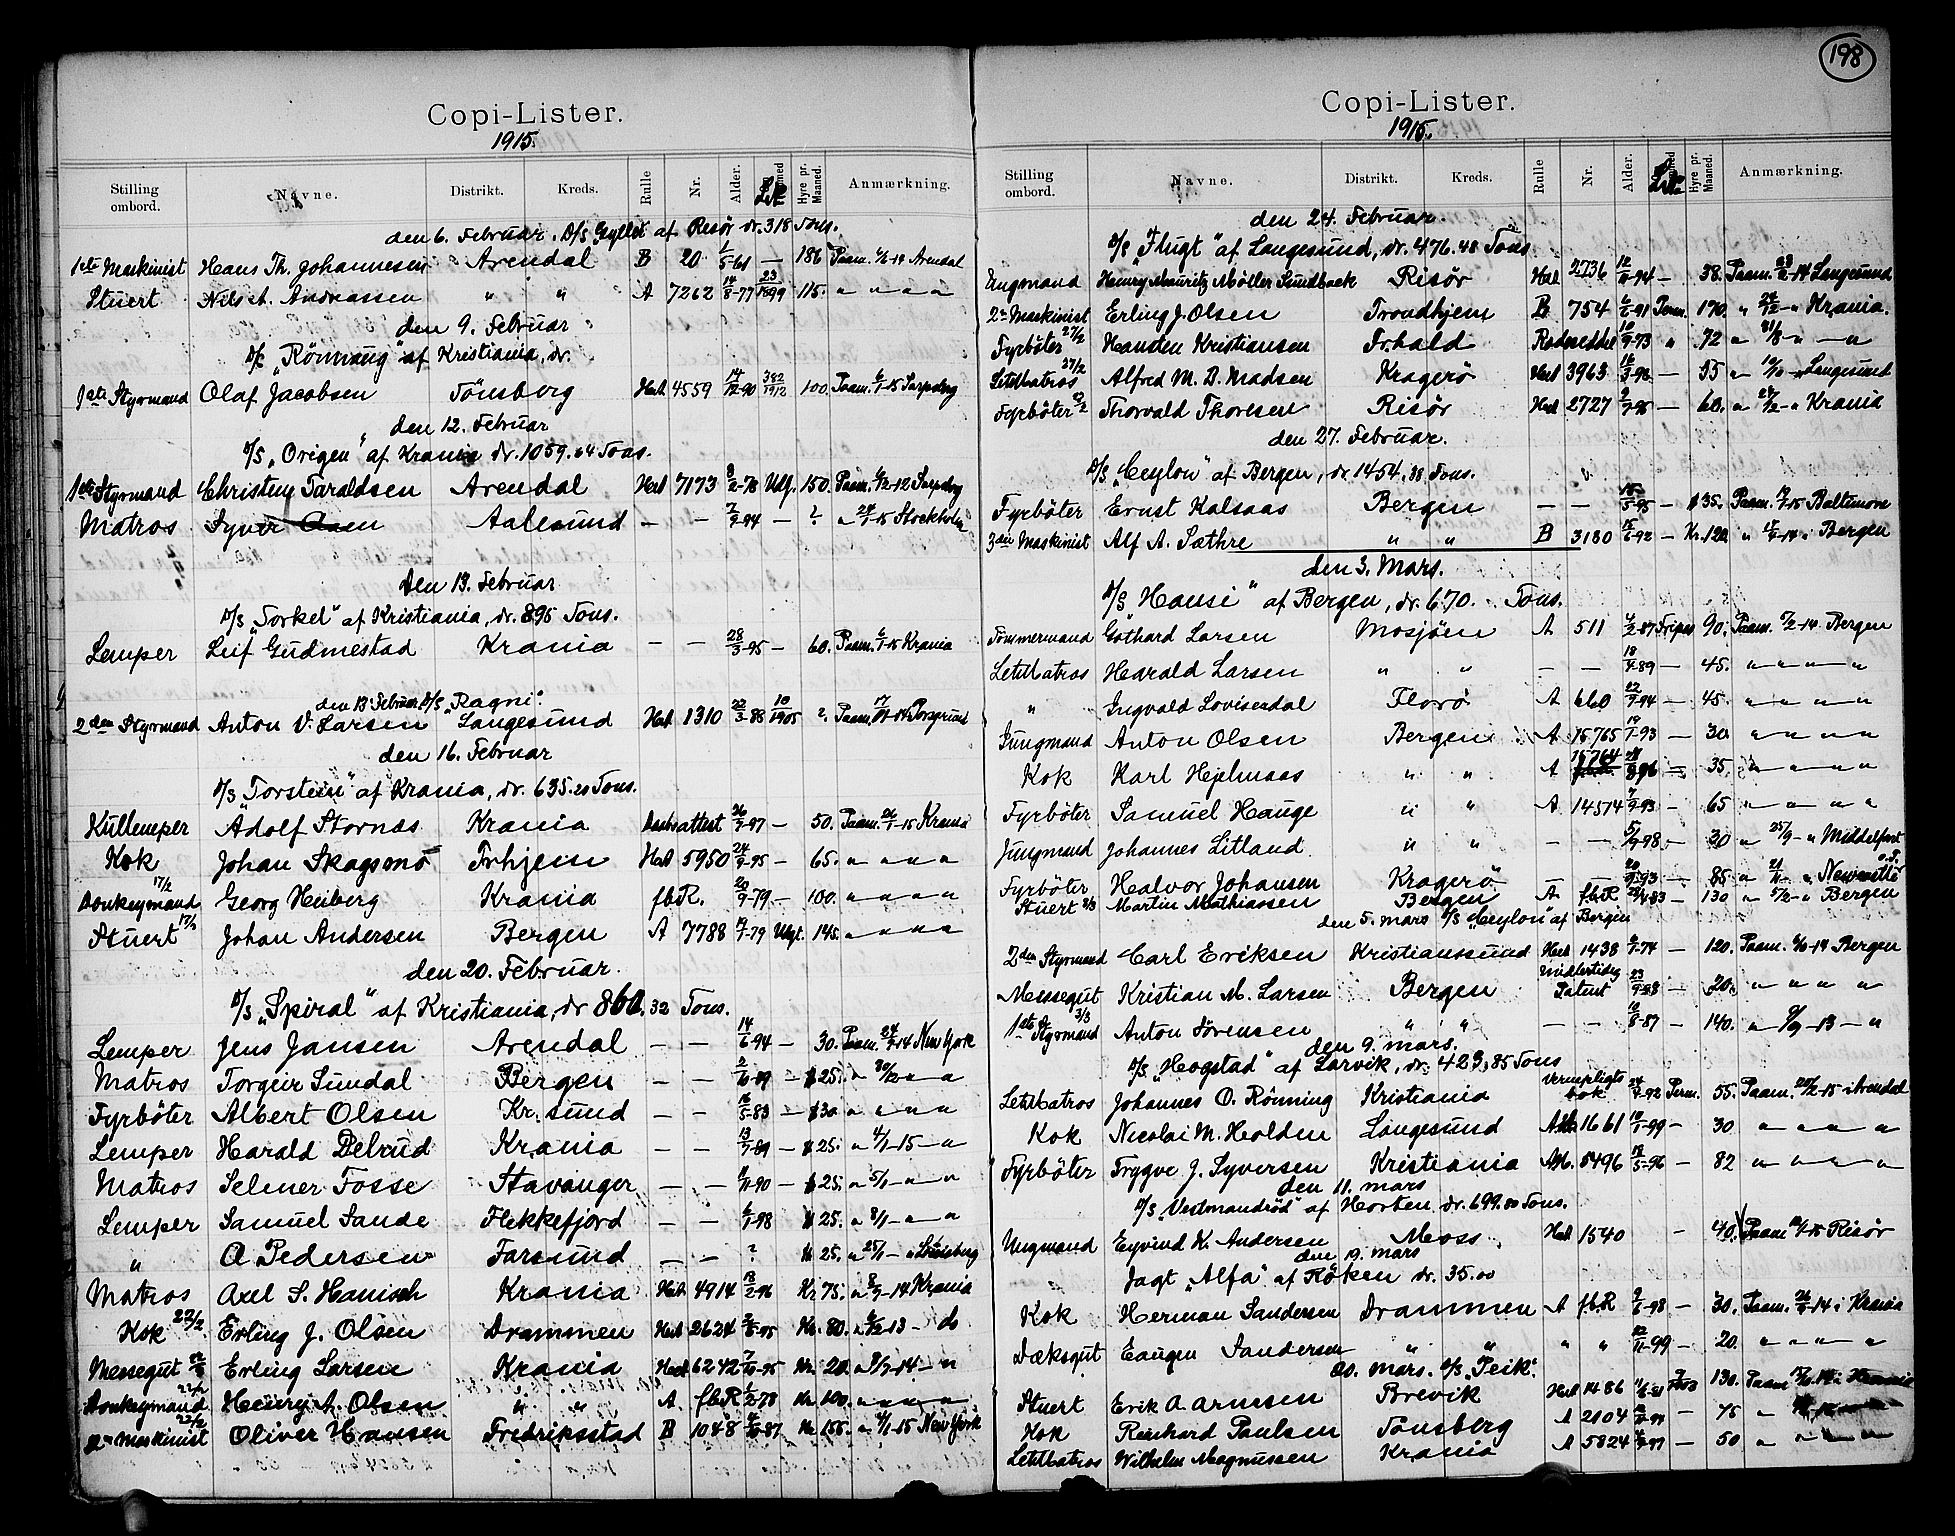 198
Copi-Lister.
1915.
Stilling ombord. Navne. Distrikt. Kreds. Rulle Nr. Alder. Hyre pr. Maaned. Anmærkning.
den 6. Februar. D/S Gyller af Risør dr. 318 Tons.
1ste Maskinist Hans Th. Johannesen Arendal B 20 1/5-61 — 186 Paam. Arendal
Stuert Nils A. Andreassen " " A 7262 14/8-77 115. " " " "
den 9. Februar
D/S „Rönnaug“ af Kristiania, dr.
1ste Styrmand Olaf Jacobsen Tönsberg Hed. 4559 14/12-90 382/1912 100. Paam. 6/1-15 Sarpsborg
den 12. Februar
D/S „Origen“ af Krania dr. 1059.64 Tons.
1ste Styrmand Christing Taraldsen Arendal Hed 7173 8/2-78 Udf. 150. Paam. Sarpsborg
Matros Syver Aalesund — — 2/9-94 — ? " 24/1-15 Stockholm
den 13. Februar
D/S „Torkel“ af Kristiania, dr. 895 Tons.
Lemper Leif Gudmestad Krania — — 28/3-95 — 60. Paam. 6/1-15 Krania
den 13. Februar D/S „Ragni“.
2den Styrmand Anton V. Larsen Langesund Hed 1310 22/3-88 10/1905 ? Paam. Porsgrund
den 16. Februar
D/S „Torstein“ af Krania, dr. 635.20 Tons.
Kullemper Adolf Stornæs Krania Daabsattest 26/7-97 — 50. Paam. 26/1-15 Krania
Kok Johan Skagsmo Trhjem Hed 5950 24/9-95 — 65. " " " "
Donkeymand 17/2 Georg Heiberg Krania fbR. 20/9-79 — 100. " " " "
Stuert 17/2 Johan Andersen Bergen A 7788 19/7-79 Udgt. 145. " " " "
den 20. Februar.
D/S „Spiral“ af Kristiania, dr 860.32 Tons.
Lemper Jens Jansen Arendal — — 14/6-94 — 30. Paam. 24/7-14 New York
Matros Torgeir Sundal Bergen — — 2/10-89 — $ 25. " 30/12 " — "
Fyrböter Albert Olsen Kr. sund — — 16/5-83 — $ 30 " " — "
Lemper Harald Delrud Krania — — 13/7-89 — $ 25. " 4/1-15 — "
Matros Selmer Fosse Stavanger — — 11/11-90 — $ 25. " 5/1 — " — "
Lemper Samuel Sande Flekkefjord — — 6/1-98 $ 25. " 8/1 — " — "
" O Pedersen Farsund — — ? Kr 25. " 25/1 —
Matros Axel S. Hanisch Krania Hed. 4914 18/2-96 Kr 75. " 8/9-14 Krania
Kok 22/2 Erling J. Olsen Drammen Hed 2624 Kr. 80. " 6/12-13 — do
Messegut 22/2 Erling Larsen Krania Hed 6242 7/10-95 Kr. 20. " 9/7-14 — "
Donkeymand 22/2 Henry A. Olsen " " A. fbR 6/2-78 Kr. 100. " " "
2n Maskinist 22/2 Oliver Hansen Fredriksstad B 1048 4/10-87 Kr. 155. " 4/1-15 New York
Copi-Lister.
1915.
Stilling ombord. Navne. Distrikt. Kreds. Rulle Nr. Alder. Hyre pr. Maaned. Anmærkning.
den 24. Februar.
D/S „Flugt“ af Langesund, dr. 476.48 Tons
Ungmand Henry Mauritz Møller Sundbæk Risör Hed. 2736 — 38. Paam. Langesund
2n Maskinist Erling J. Olsen Trondhjem B 754 6/6-91 Perm. 170. " 24/12 - " Krania.
Fyrböter 27/2 Hansten Kristiansen Frhald Rodeseddel 10/9-73 " 72 " 31/8 - " — "
Letmatros 27/2 Alfred M. D. Madsen Kragerö Hed 3963 16/3-98 — 55 " 10/10 - Langesund
Fyrböter Thorvald Thoresen Risör Hed 2727 2/7-95 — 60. " Krania
den 27. Februar.
D/S „Ceylon“ af Bergen, dr 1454,38 Tons.
Fyrböter Ernst Kalsaas Bergen — — 15/5-95 — $ 35. Paam. Baltimore
3die Maskinist Alf A. Sæthre " " B 3180 15/6-92 — Kr. 120. " Bergen
den 3. Mars.
D/S „Hansi“ af Bergen, dr. 670. Tons.
Tömmermand Gothard Larsen Mosjöen A 511 Fripas 90. Paam. Bergen
Letmatros Harald Larsen " " — — 18/4-89 — 45. " — " — " "
" Ingvald Lovisendal Florö A 660 22/9-94 — 45. " — " " "
Jungmand Anton Olsen Bergen A 15765 19/7-93 — 30. " — " " "
Kok Karl Hjelmaas " " A 15764 — 35. " — " " "
Fyrböter Samuel Hauge " " A 14574 9/9-93 — 65 " — " " "
Jungmand Johannes Litland " " — — 5/9-98 — 30 " 25/9 - " Middelfart
Fyrböter Halvor Johansen Kragerö — — — 85 " 21/11 - " Newcastle o.T.
Stuert 3/3 Martin Mathiassen Bergen A fbR 28/4-83 — 130 " 5/12 - " Bergen
den 5. mars D/S „Ceylon“ af Bergen
2den Styrmand Carl Eriksen Kristianssund Hed 1438 — 120. Paam. Bergen
Messegut Kristian M. Larsen Bergen Midlertidig Patent — 20. " " " "
1ste Styrmand 3/3 Anton Sörensen " " — — 10/8-87 — 140. " 9/9-13 — "
den 9. mars.
D/S „Hogstad“ af Larvik, dr. 423,85 Tons
Letmatros Johannes O. Rönning Kristiania Vernepligts bok 24/7-92 Perm. 55. Paam. Arendal
Kok Nicolai M. Holden Langesund 1661 10/1-99 — 30 " " " "
Fyrböter Trygve J. Syversen Kristiania 5496 18/5-96 — 82 " " " "
den 11. mars
D/S „Vestmandröd“ af Horten dr. 699.00 Tons.
Ungmand Eyvind K. Andersen Moss Hed 1540 — 40. Paam Risör
den 19. mars
Jagt „Alfa“ af Röken dr. 35.00
Kok Herman Sandersen Drammen A fbR 2/6-98 — 30. Paam. Krania
Dæksgut Eaugen Sandersen " " " " 12/11-99 — 20. " " " "
20. mars. D/S „Peik“.
Stuert Erik A. Arnesen Brevik Hed 1486 130. Paam
Kok Reinhard Paulsen Tönsberg A 2104 — 75 "
Letmatros Wilhelm Magnussen Krania A 5824 — 50 "